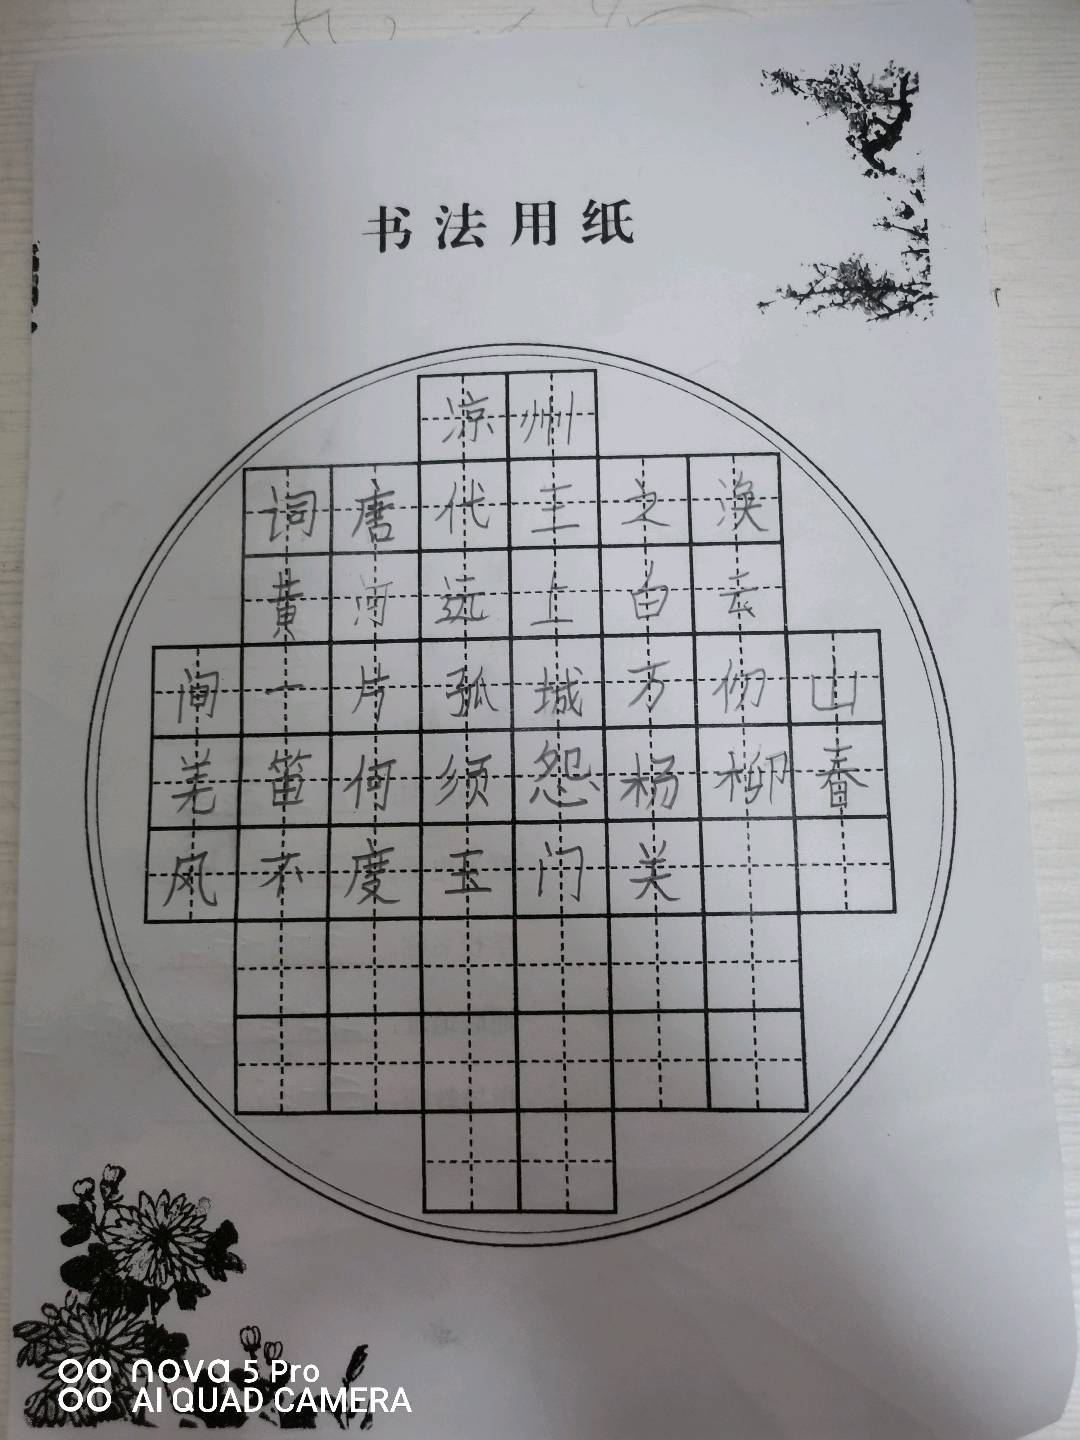 书法用纸
凉州
词唐代王之涣
黄河远上白云
间一片孤城万仞山
羌笛何须怨杨柳春
风不度玉门关
nova 5 Pro
AI QUAD CAMERA